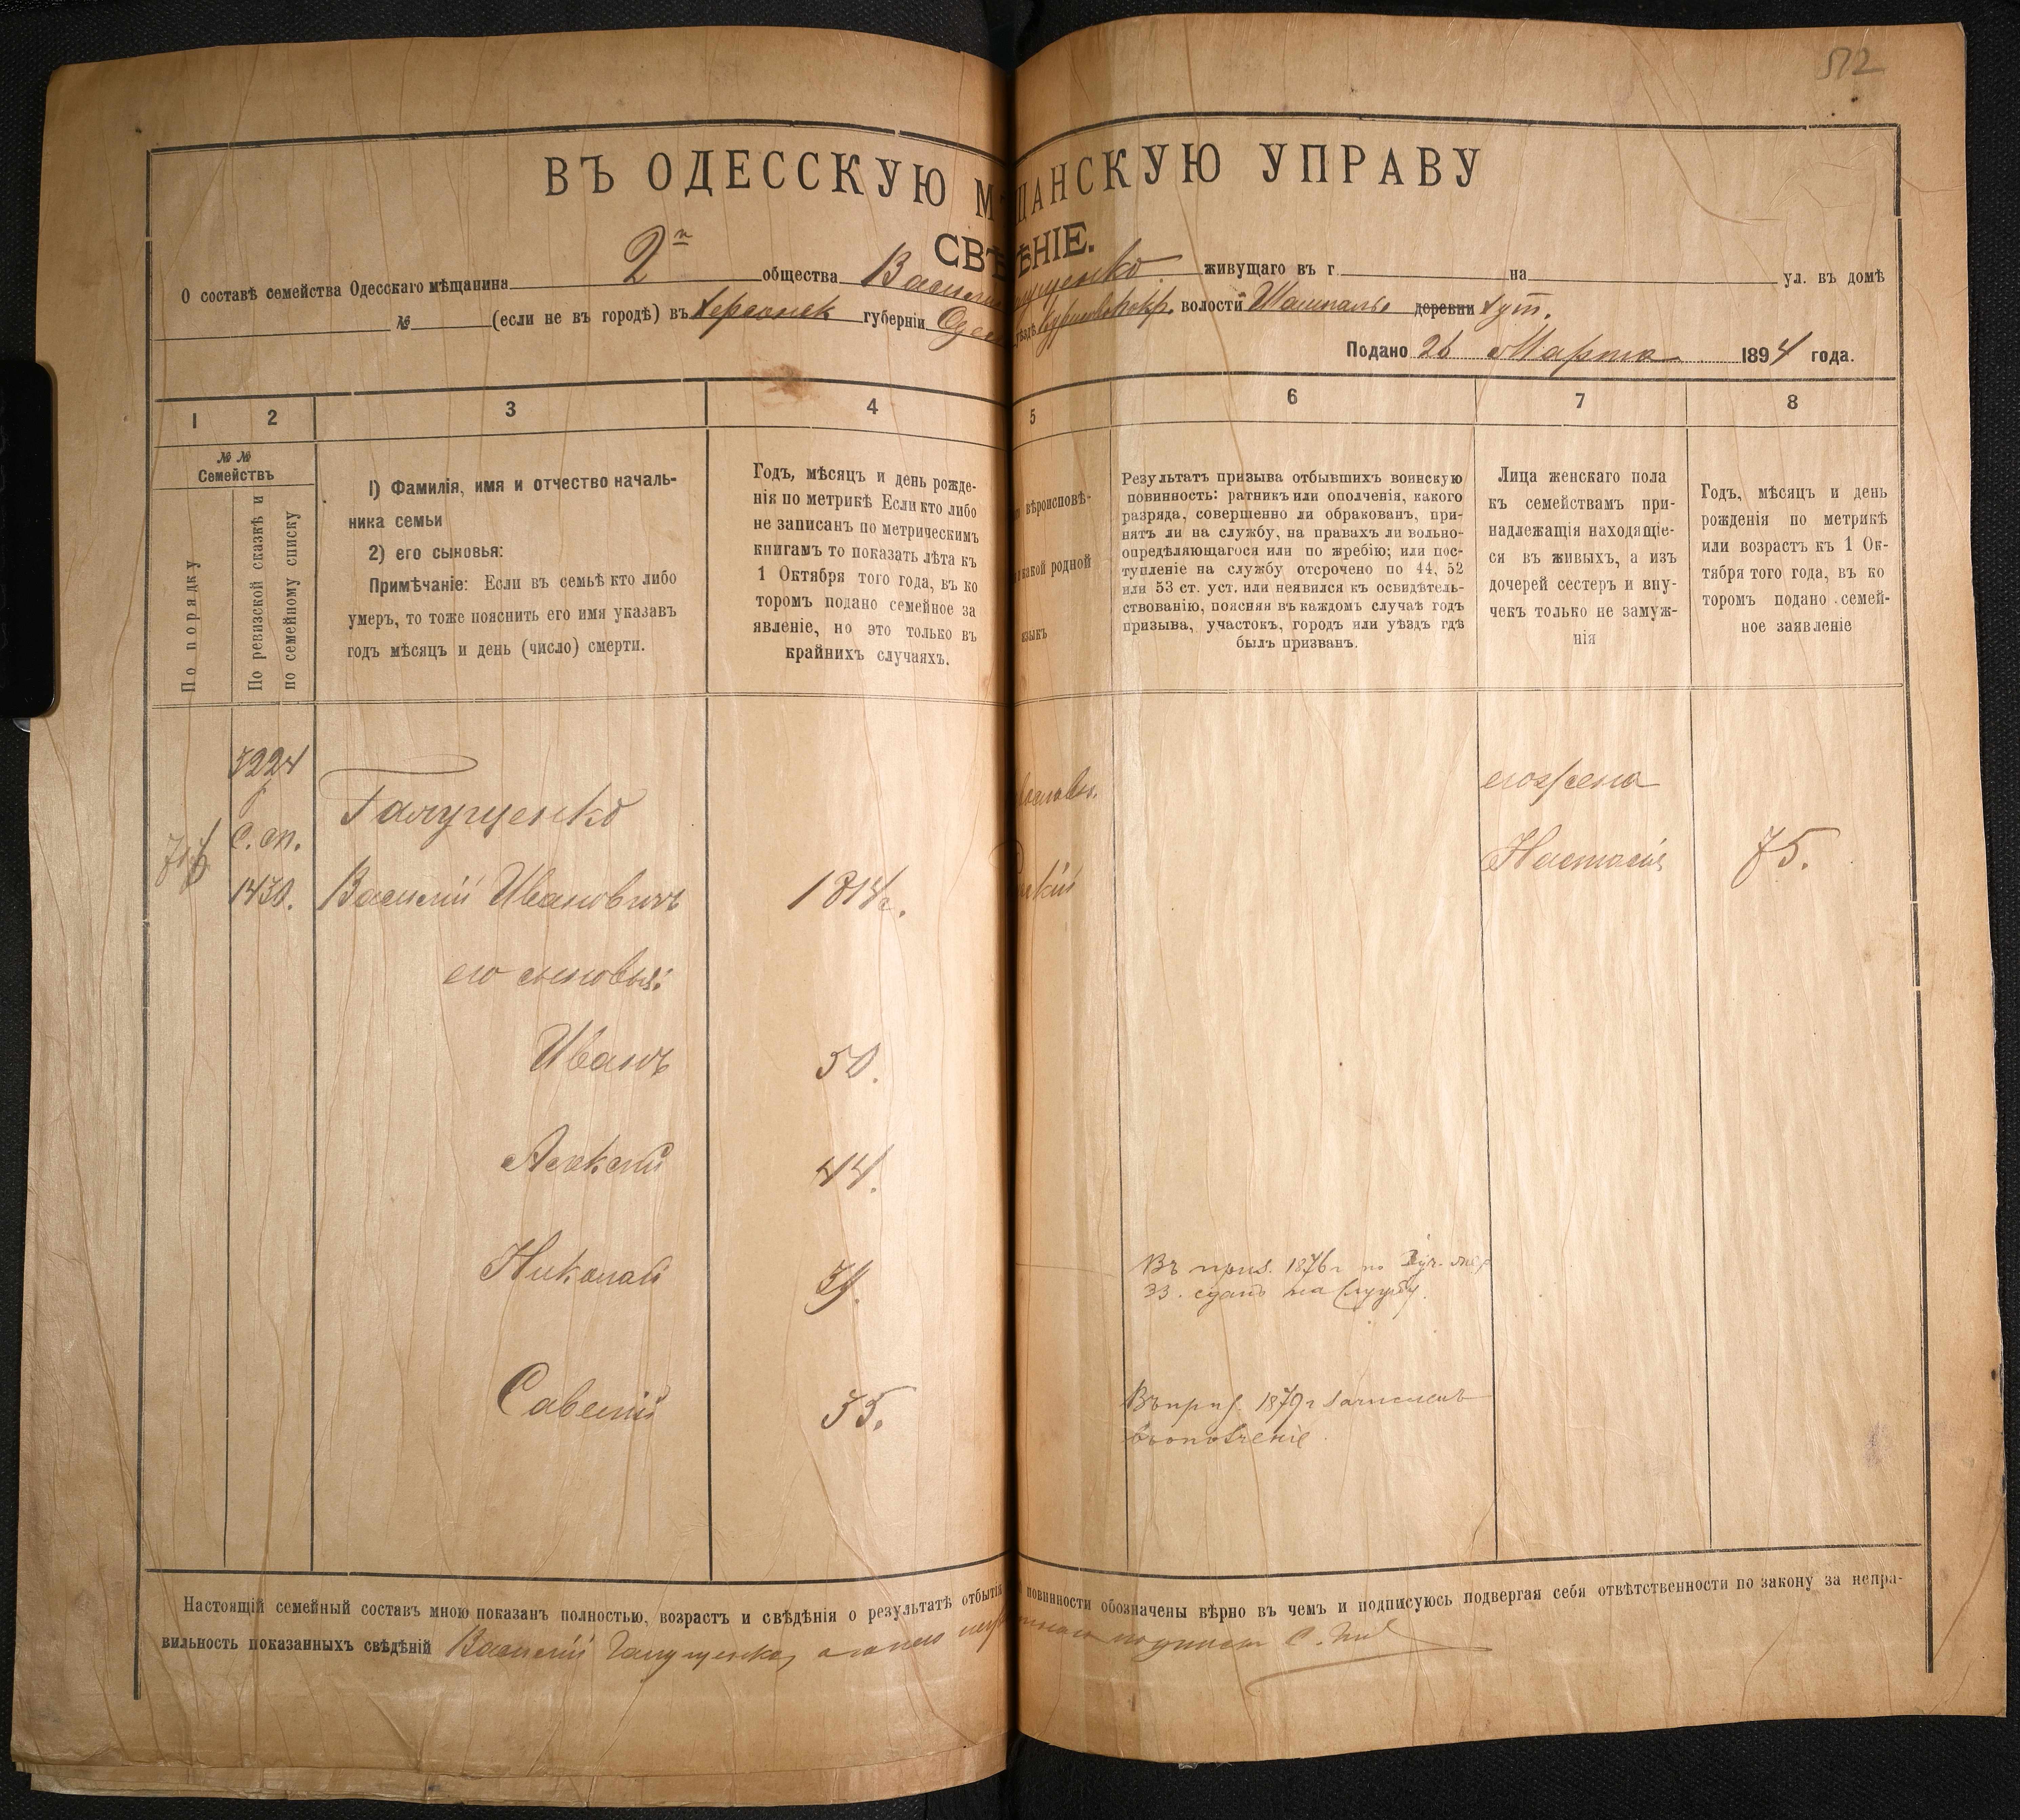 512
ВЪ ОДЕССКУЮ М ЩАНСКУЮ УПРАВУ
СВѢ ѢНІЕ.
О составѣ семейства Одесскаго мѣщанина 2й общества Васил ущенко живущаго въ г. на ул. въ домѣ
№ (если не въ городѣ) въ Херсонск губерніи Одес уѣздѣ волости деревни хут.
Подано 26 Марта 1894 года.
1 2 3 4 5 6 7 8
№№
Семействъ
По порядку
По ревизской сказкѣ и
по семейному списку
1) Фамилія, имя и отчество началь-
ника семьи
2) его сыновья:
Примѣчаніе: Если въ семьѣ кто либо
умеръ, то тоже пояснить его имя указавъ
годъ мѣсяцъ и день (число) смерти.
Годъ, мѣсяцъ и день рожде-
нія по метрикѣ Если кто либо
не записанъ по метрическимъ
книгамъ то показать лѣта къ
1 Октября того года, въ ко
торомъ подано семейное за
явленіе, но это только въ
крайнихъ случаяхъ.
вѣроисповѣ-
какой родной
языкъ
Результатъ призыва отбывшихъ воинскую
повинность: ратникъ или ополченія, какого
разряда, совершенно ли обракованъ, при-
нятъ ли на службу, на правахъ ли вольно-
опредѣляющагося или по жребію; или пос-
тупленіе на службу отсрочено по 44, 52
или 53 ст. уст. или неявился къ освидѣтель-
ствованію, поясняя въ каждомъ случаѣ годъ
призыва, участокъ, городъ или уѣздъ гдѣ
былъ призванъ.
Лица женскаго пола
къ семействамъ при-
надлежащія находящіе-
ся въ живыхъ, а изъ
дочерей сестеръ и вну-
чекъ только не замуж-
нія
Годъ, мѣсяцъ и день
рожденія по метрикѣ
или возрастъ къ 1 Ок-
тября того года, въ ко
торомъ подано семей-
ное заявленіе
3224
с. сп.
1430.
Галущенко
Василій Ивановичъ 1814г.
ославн.
скій
его жена
Настасія 75.
его сыновья:
Иванъ 50.
Алексѣй 44.
Николай 39.
Въ приз. 1876г по 3 уч.
33. сданъ на службу.
Савелій 35.
Въ приз. 1879г зачисленъ
въ ополченіе.
Настоящій семейный составъ мною показанъ полностью, возрастъ и свѣдѣнія о результатѣ отбытія повинности обозначены вѣрно въ чемъ и подписуюсь подвергая себя отвѣтственности по закону за непра-
вильность показанныхъ свѣдѣній Василій Галущенко, а за него негр